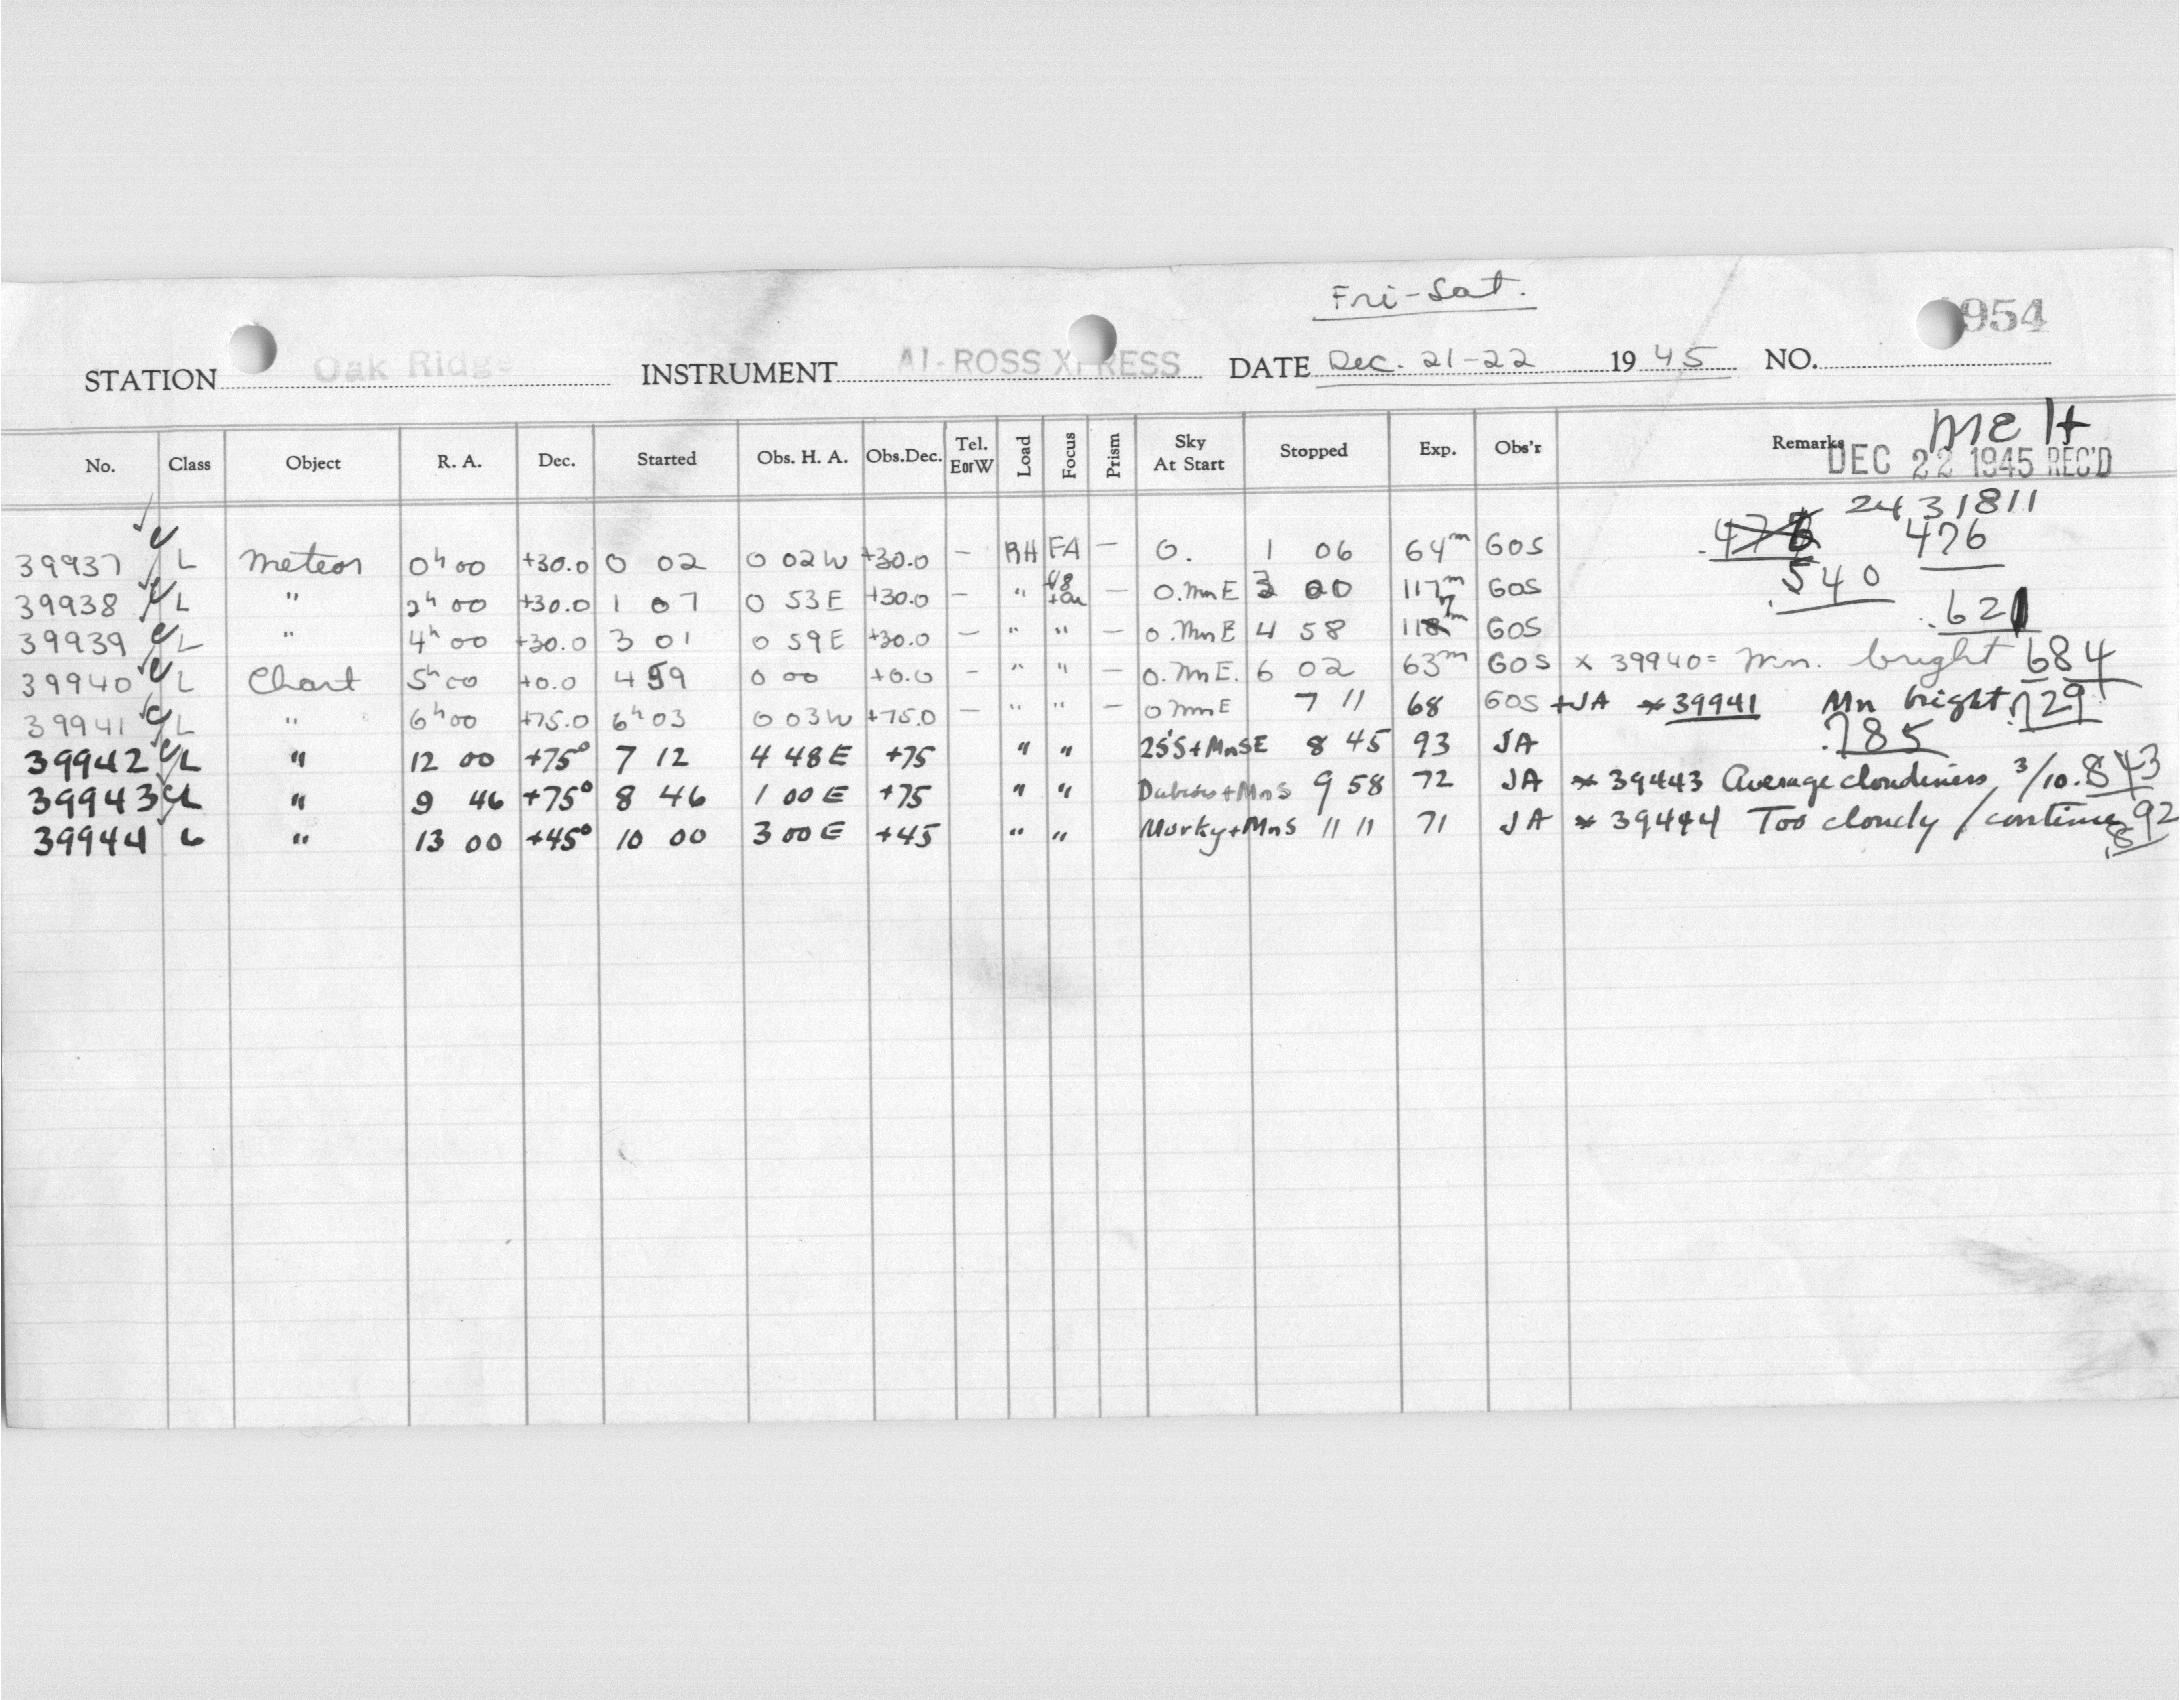 Fri-Sat.
954
STATION Oak Ridge INSTRUMENT AI-ROSS XPRESS DATE Dec. 21-22 1945 NO.
No. Class Object R. A. Dec. Started Obs. H. A. Obs.Dec. Tel. EorW Load Focus Prism Sky At Start Stopped Exp. Obs'r Remarks
DEC 22 1945 REC'D
2431811
39937 L Meteor 0h 00 +30.0 0 02 0 02W +30.0 - RH FA - 0. 1 06 64m GOS .476
39938 L " 2h 00 +30.0 1 07 0 53E +30.0 - " - 0. Mn E 3 00 117m GOS .540
39939 L " 4h 00 +30.0 3 01 0 59E +30.0 - " " - 0. Mn E 4 58 117m GOS .621
39940 L Chart 5h 00 +0.0 4 59 0 00 +0.0 - " " - 0. Mn E. 6 02 63m GOS x 39940= Mn. bright 684
39941 L " 6h 00 +75.0 6h 03 0 03W +75.0 - " " - 0 Mn E 7 11 68 GOS+JA * 39941 Mn bright .729
39942 L " 12 00 +75° 7 12 4 48E +75 " " 25'S+MnSE 8 45 93 JA .785
39943 L " 9 46 +75° 8 46 1 00E +75 " " Dubious+MnS 9 58 72 JA * 39443 Average cloudiness 3/10 .843
39944 L " 13 00 +45° 10 00 3 00E +45 " " Murky+MnS 11 11 71 JA * 39444 Too cloudy / continue .892